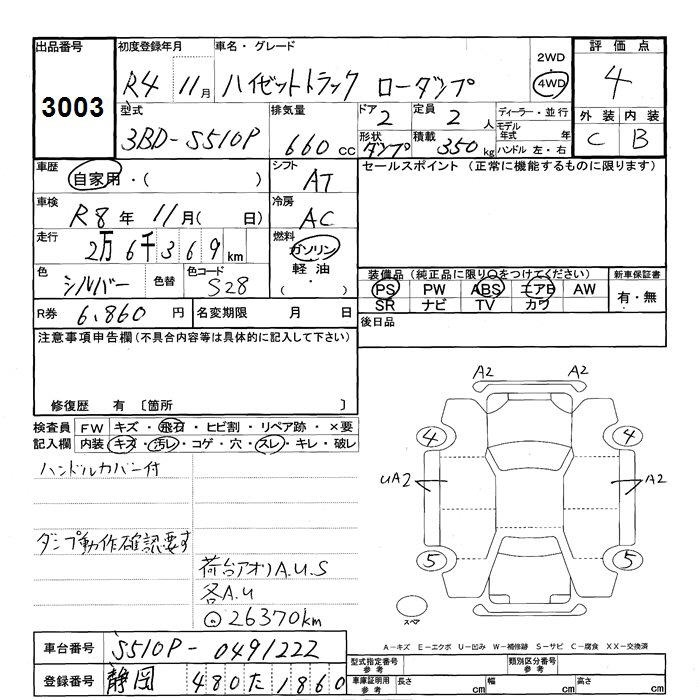 出品番号 初度登録年月 車名・グレード 2WD ・ 4WD 評価点
3003 R4 11月 ハイゼットトラック ローダンプ 4
型式 排気量 ドア 定員 ディーラー・並行 外装 内装
3BD-S510P 660cc 2 2人 モデル年式 年 C B
形状 積載 ハンドル 左・右
ダンプ 350kg
車歴 自家用・( ) シフト AT セールスポイント (正常に機能するものに限ります)
車検 R8年 11月( 日) 冷房 AC
走行 2万6千369km 燃料 ガソリン 軽油 ・ ( )
色 シルバー 色替 色コード S28 装備品 (純正品に限り○をつけてください) 新車保証書
PS PW ABS エアB AW 有・無
SR ナビ TV カワ
R券 6,860円 名変期限 月 日 後日品
注意事項申告欄 (不具合内容等は具体的に記入して下さい)
修復歴 有 〔箇所 〕
検査員 FW キズ・飛石・ヒビ割・リペア跡・×要
記入欄 内装 キズ・汚レ・コゲ・穴・スレ・キレ・破レ
ハンドルカバー付
ダンプ動作確認要す
荷台アオリA.U.S
各A.U
26370km
A2 A2
4 4
UA2 A2
5 5
スペア
A−キズ E−エクボ U−凹み W−補修跡 S−サビ C−腐食 XX−交換済
車台番号 S510P-0491222 型式指定番号 参考 類別区分番号 参考
登録番号 静岡 480た1860 車庫証明用 参考 長さ cm 幅 cm 高さ cm